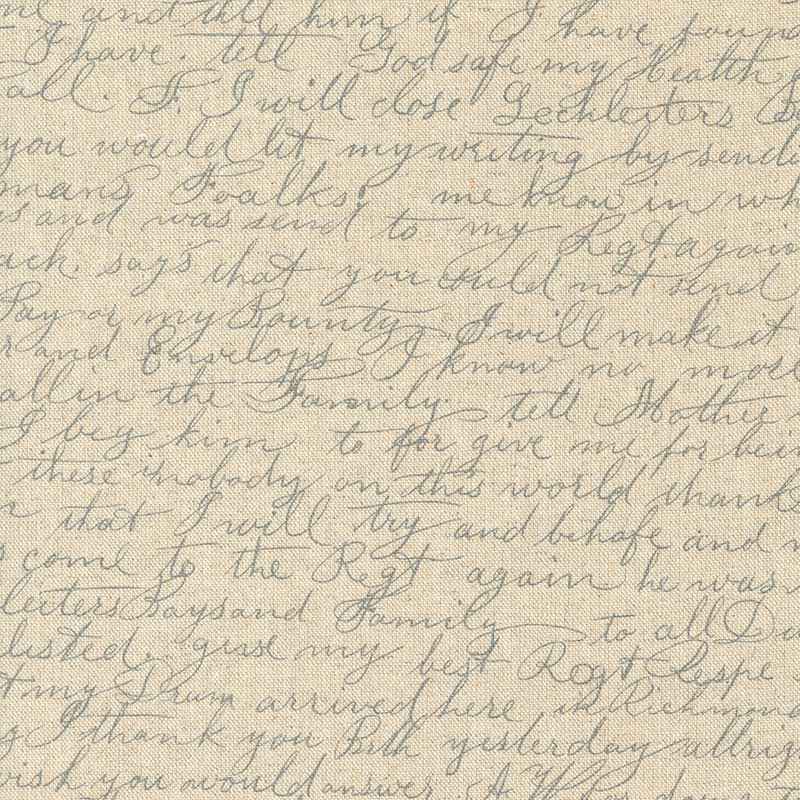 me and tell him if I have found
I have. tell God safe my Health
all. F. I will close Lechleiters
you would let my writing by sendi
mans Foalks. me know in wh
as and was send to my Regt. again
ack, says that you could not send
Pay or my Bounty, I will make it
r and Envelops I know no more
all in the Family. tell Mother
I beg him to for give me for bein
these is nobody on this world thank
that I will try and behafe and
come to the Regt again he was
leiters Boys and Family to all
listed, give my best Regt Respe
t my Drum arrived here in Richmond
g I thank you Both yesterday allrig
wish you would answer.